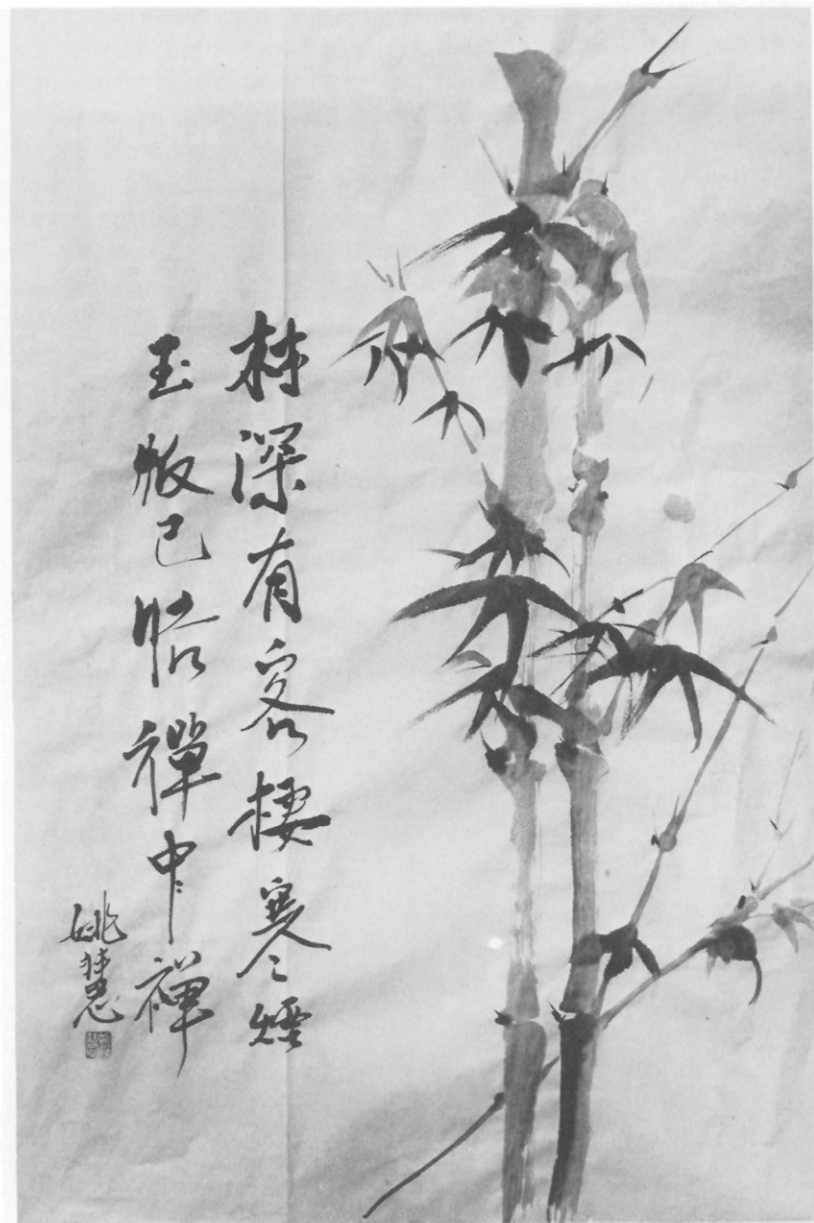 林深有客棲寒煙
玉版已悟禪中禪
姚